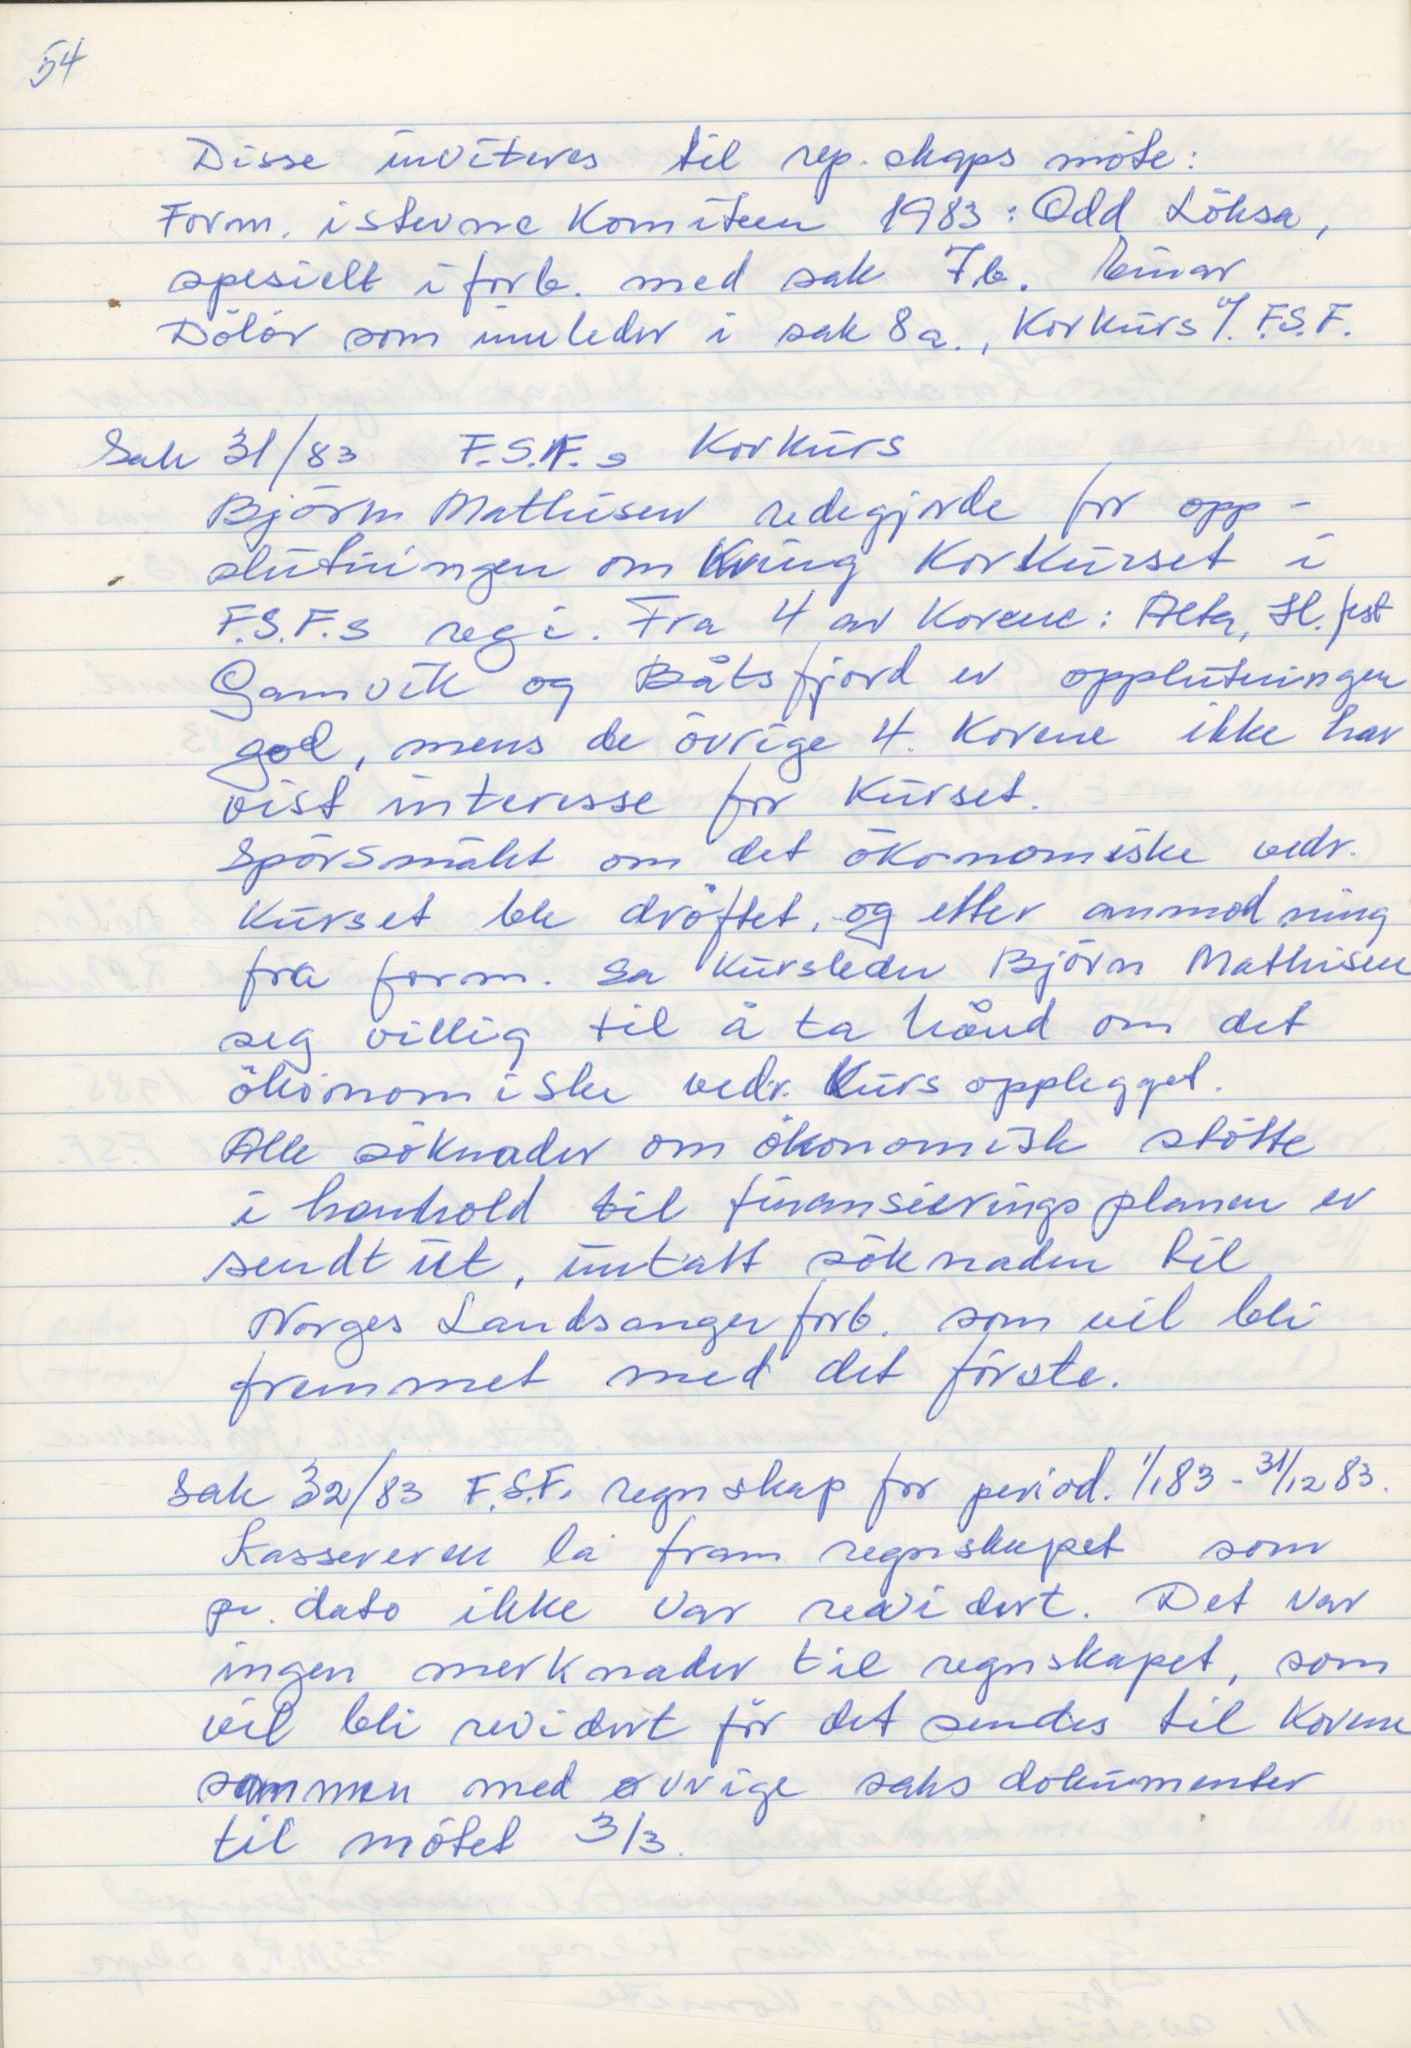 54
Disse inviteres til rep.skaps möte:
Form. i stevne Komiteen 1983: Odd Löksa,
spesielt i forb. med sak 7b. Einar
Dölör som innleder i sak 8a., Korkurs i/ F.S.F.
Sak 31/83 F.S.F.s Korkurs
Björn Mathisen redegjorde for opp-
slutningen omkring Korkurset i
F.S.F.s regi. Fra 4 av Korene: Alta, H.fest
Gamvik og Båtsfjord er opplutningen
god, mens de övrige 4. Korene ikke har
vist interesse for Kurset.
Spörsmålet om det ökonomiske vedr.
Kurset ble dröftet, og etter anmodning
fra form. sa Kursleder Björn Mathisen
seg villig til å ta hånd om det
ökonomiske vedr. Kursopplegget.
Alle söknader om ökonomisk stötte
i henhold til finansieringsplanen er
sendt ut, untatt söknaden til
Norges Landsangerforb. som vil bli
fremmet med det förste.
Sak 32/83 F.S.F.s regnskap for period. 1/1 83 - 31/12 83.
Kassereren la fram regnskapet som
pr. dato ikke var revidert. Det var
ingen merknader til regnskapet, som
vil bli revidert för det sendes til Korene
sammen med övrige saks dokumenter
til mötet 3/3.